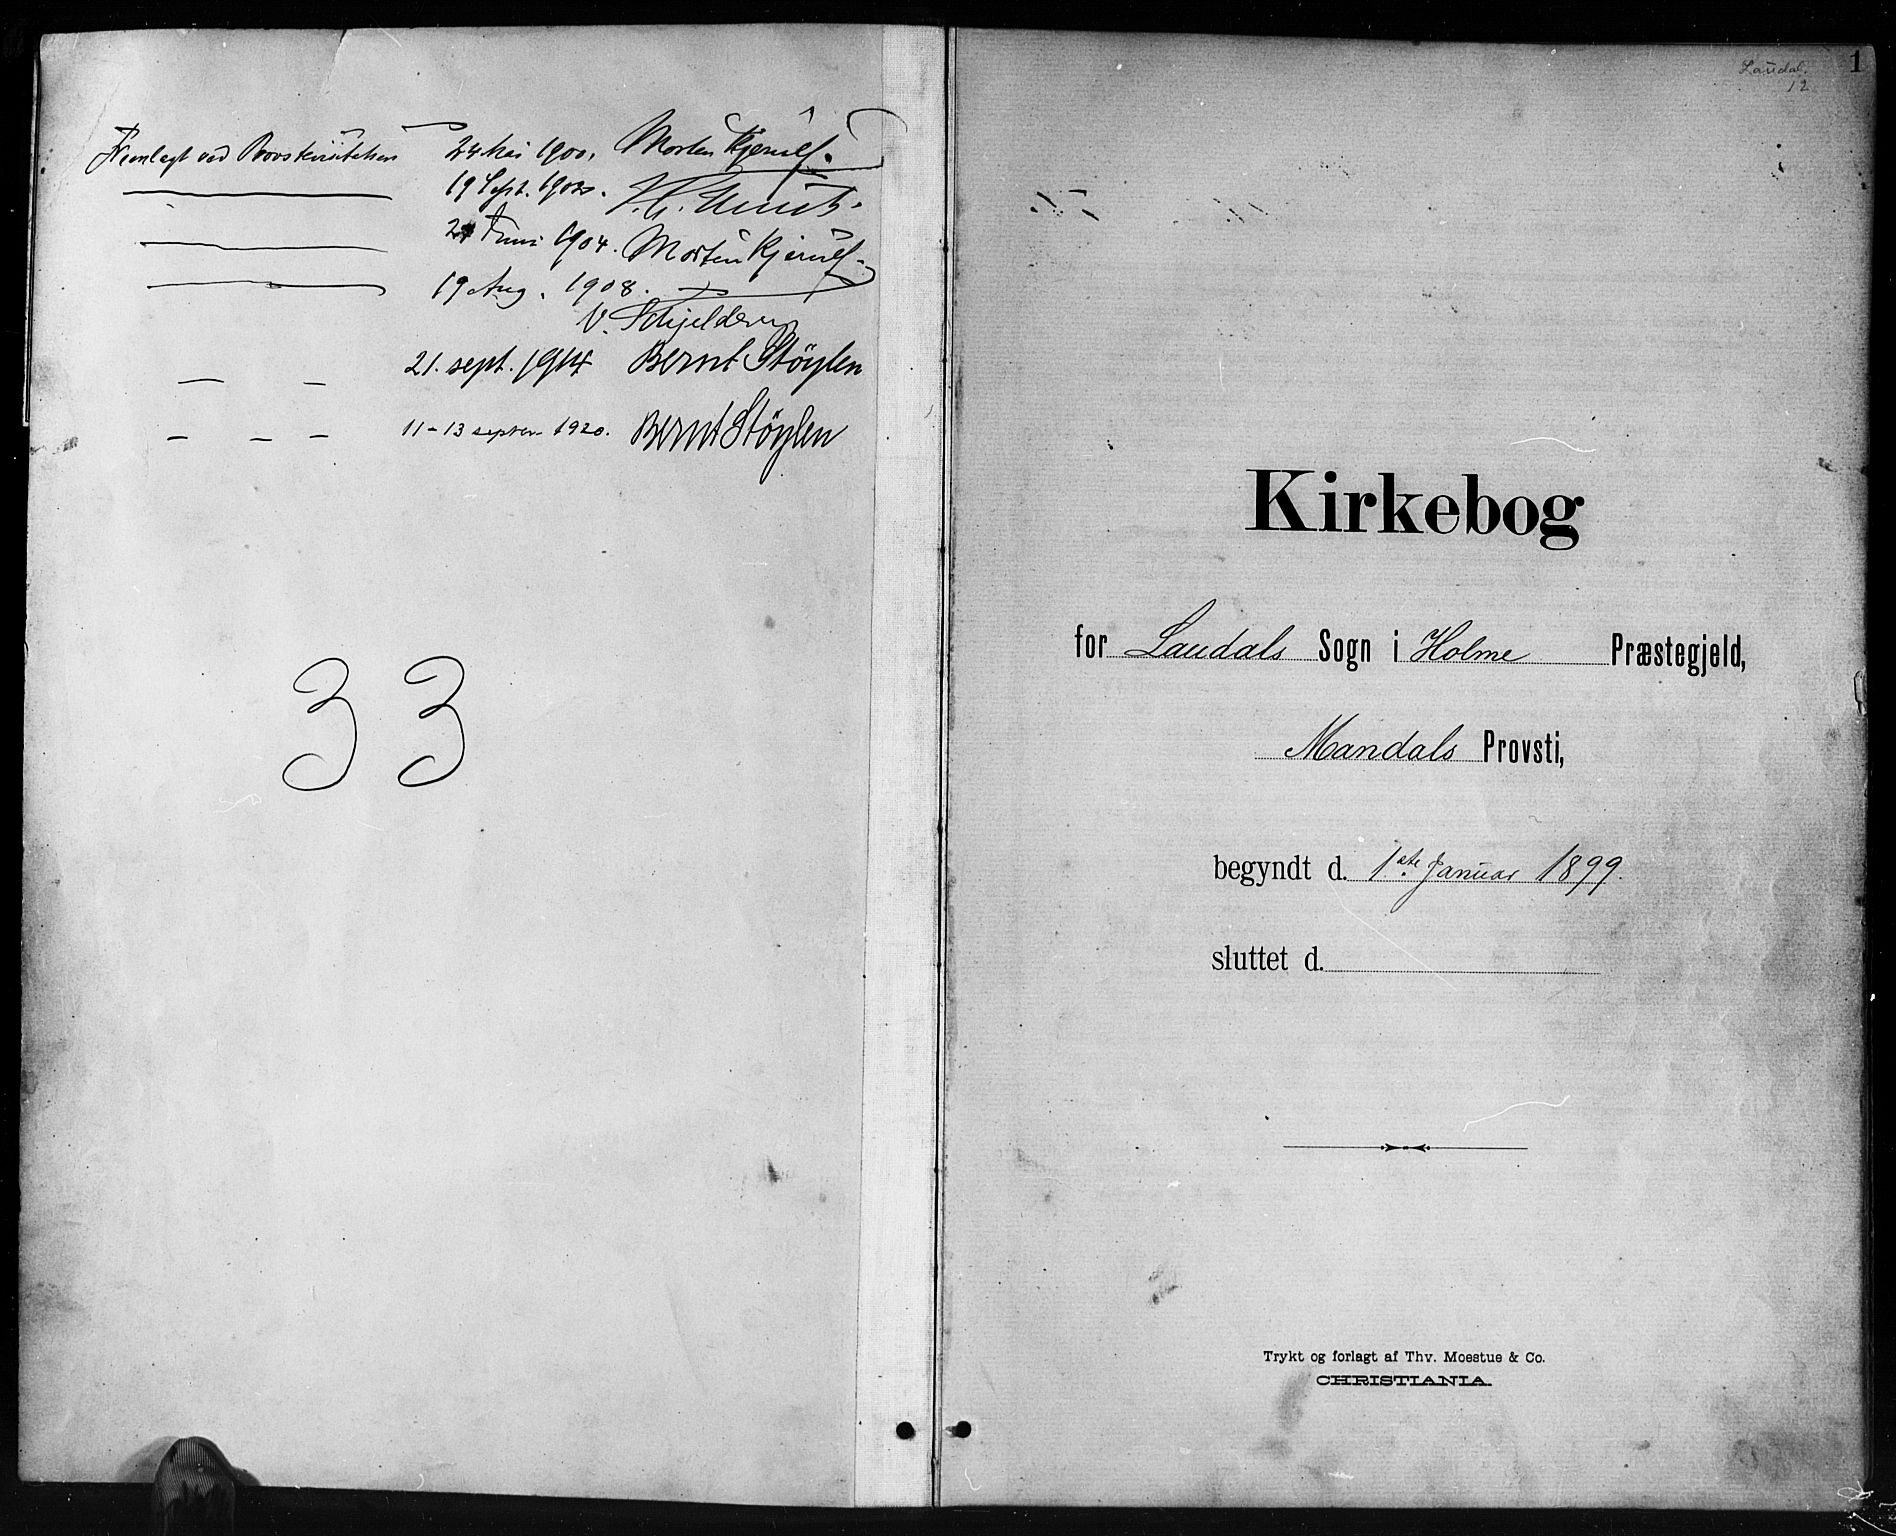 Fremlagt ved Provstevisitatsen 24 Mai 1900. Morten Kjerulf.
19 Sept. 1902.
Juni 1904. Morten Kjerulf.
19 Aug. 1908.
V. Schjelderup
— — 21. sept. 1914 Bernt Støylen
— — — 11-13 septbr 1920. Bernt Støylen
33
1
Laudal.
12
Kirkebog
for Laudals Sogn i Holme Præstegjeld,
Mandals Provsti,
begyndt d. 1ste Januar 1899.
sluttet d.
Trykt og forlagt af Thv. Moestue & Co.
CHRISTIANIA.